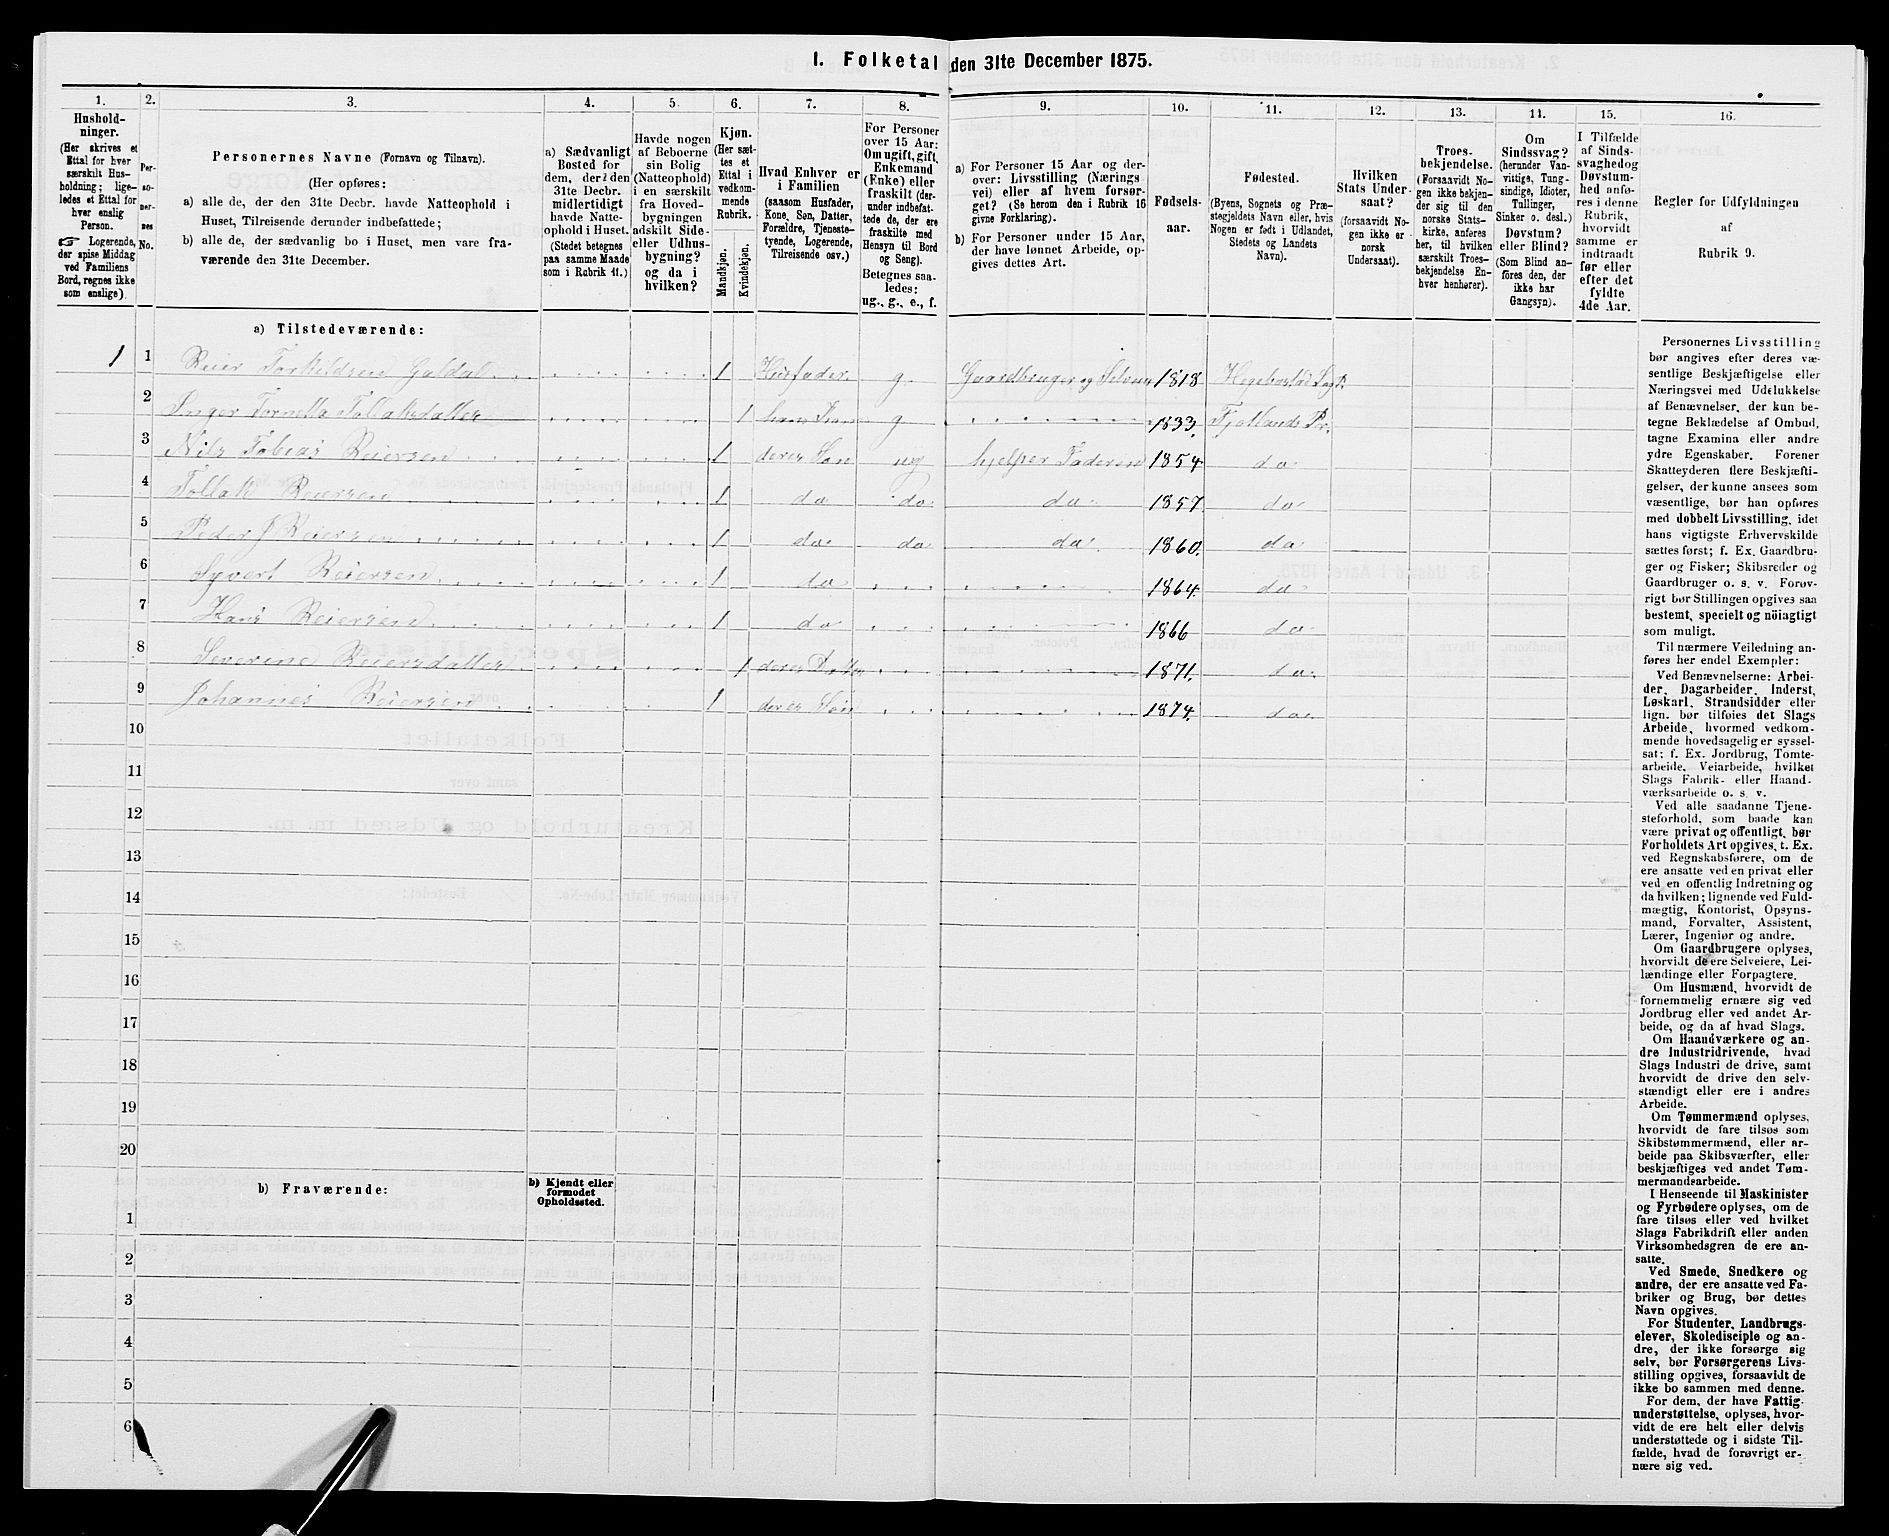 I. Folketal den 31te December 1875.
1. 2. 3. 4. 5. 6. 7. 8. 9. 10. 11. 12. 13. 14. 15. 16.
Hushold-
ninger.
(Her skrives et
Ettal for hver
særskilt Hus-
holdning; lige-
ledes et Ettal for
hver enslig
Person.
☞ Logerende,
der spise Middag
ved Familiens
Bord, regnes ikke
som enslige).
Per-
so-
ner-
nes
No.
Personernes Navne (Fornavn og Tilnavn).
(Her opføres:
a) alle de, der den 31te Decbr. havde Natteophold i
Huset, Tilreisende derunder indbefattede;
b) alle de, der sædvanlig bo i Huset, men vare fra-
værende den 31te December.
a) Sædvanligt
Bosted for
dem, der den
31te Decbr.
midlertidigt
havde Natte-
ophold i Huset.
(Stedet betegnes
paa samme Maade
som i Rubrik 11.)
Havde nogen
af Beboerne
sin Bolig
(Natteophold)
i en særskilt
fra Hoved-
bygningen
adskilt Side-
eller Udhus-
bygning?
og da i
hvilken?
Kjøn.
(Her sæt-
tes et
Ettal i
vedkom-
mende
Rubrik.
Mandkjøn.
Kvindekjøn.
Hvad Enhver er
i Familien
(saasom Husfader,
Kone, Søn, Datter,
Forældre, Tjeneste-
tyende, Logerende,
Tilreisende osv.)
For Personer
over 15 Aar:
Om ugift, gift,
Enkemand
(Enke) eller
fraskilt (der-
under indbefat-
tede de, der ere
fraskilte med
Hensyn til Bord
og Seng).
Betegnes saa-
ledes:
ug., g., e., f.
a) For Personer 15 Aar og der-
over: Livsstilling (Nærings-
vei) eller af hvem forsør-
get? (Se herom den i Rubrik 16
givne Forklaring).
b) For Personer under 15 Aar,
der have lønnet Arbeide, op-
gives dettes Art.
Fødsels-
aar.
Fødested.
(Byens, Sognets og Præ-
stegjeldets Navn eller, hvis
Nogen er født i Udlandet,
Stedets og Landets
Navn).
Hvilken
Stats Under-
saat?
(forsaavidt No-
gen ikke er
norsk
Undersaat).
Troes-
bekjendelse.
(Forsaavidt No-
gen ikke bekjen-
der sig til den
norske Stats-
kirke, anføres
her, til hvilken
særskilt Troes-
bekjendelse En-
hver henhører).
Om
Sindssvag?
(herunder Van-
vittige, Tung-
sindige, Idioter,
Tullinger,
Sinker o. desl.)
Døvstum?
eller Blind?
(Som Blind an-
føres den, der
ikke har
Gangsyn).
I Tilfælde
af Sinds-
svaghed og
Døvstum-
hed anfø-
res i denne
Rubrik,
hvorvidt
samme er
indtraadt
før eller
efter det
fyldte
4de Aar.
Regler for Udfyldningen
af
Rubrik 9.
a) Tilstedeværende:
1 1 Reier Torkildsen Galdal 1 Husfader g. Gaardbruger og Selveier 1818 Hegebostad Sogn
2 Inger Tornetta Tollaksdatter 1 hans Kone g 1833. Fjotlands Pr.
3 Nils Tobias Reiersen 1 deres Søn ug hjelper Faderen 1854 do
4 Tollak Reiersen 1 do do do 1857. do
5 Peder J Reiersen 1 do do do 1860. do
6 Syvert Reiersen 1 do 1864. do
7 Hans Reiersen 1 do 1866 do
8 Severine Reiersdatter 1 deres Datter 1871. do
9 Johannes Reiersen 1 deres Søn 1874. do
10
11
12
13
14
15
16
17
18
19
20
b) Fraværende:
b) Kjendt eller
formodet
Opholdssted.
1
2
3
4
5
6
Personernes Livsstilling
bør angives efter deres væ-
sentlige Beskjæftigelse eller
Næringsvei med Udelukkelse
af Benævnelser, der kun be-
tegne Beklædelse af Ombud,
tagne Examina eller andre
ydre Egenskaber. Forener
Skatteyderen flere Beskjæfti-
gelser, der kunne ansees som
væsentlige, bør han opføres
med dobbelt Livsstilling, idet
hans vigtigste Erhvervskilde
sættes først; f. Ex. Gaardbru-
ger og Fisker; Skibsreder og
Gaardbruger o. s. v. Forøv-
rigt bør Stillingen opgives saa
bestemt, specielt og nöiagtigt
som muligt.
Til nærmere Veiledning an-
føres her endel Exempler:
Ved Benævnelserne: Arbei-
der, Dagarbeider, Inderst,
Løskarl, Strandsidder eller
lign. bør tilføies det Slags
Arbeide, hvormed vedkom-
mende hovedsagelig er syssel-
sat; f. Ex. Jordbrug, Tomte-
arbeide, Veiarbeide, hvilket
Slags Fabrik- eller Haand-
værksarbeide o. s. v.
Ved alle saadanne Tjene-
steforhold, som baade kan
være privat og offentligt, bør
Forholdets Art opgives, t. Ex.
ved Regnskabsførere, om de
ere ansatte ved en privat eller
ved en offentlig Indretning og
da hvilken; lignende ved Fuld-
mægtig, Kontorist, Opsyns-
mand, Forvalter, Assistent,
Lærer, Ingeniør og andre.
Om Gaardbrugere oplyses,
hvorvidt de ere Selveiere, Lei-
lændinge eller Forpagtere.
Om Husmænd, hvorvidt de
fornemmelig ernære sig ved
Jordbrug eller ved andet Ar-
beide, og da af hvad Slags.
Om Haandværkere og an-
dre Industridrivende, hvad
Slags Industri de drive, samt
hvorvidt de drive den selv-
stændigt eller ere i andres
Arbeide.
Om Tømmermænd oplyses,
hvorvidt de fare tilsøs som
Skibstømmermænd, eller ar-
beide paa Skibsværfter, eller
beskjæftiges ved andet Tøm-
mermandsarbeide.
I Henseende til Maskinister
og Fyrbødere oplyses, om de
fare tilsøs eller ved hvilket
Slags Fabrikdrift eller anden
Virksomhedsgren de ere an-
satte.
Ved Smede, Snedkere og
andre, der ere ansatte ved Fa-
briker og Brug, bør dettes
Navn opgives.
For Studenter, Landbrugs-
elever, Skoledisciple og an-
dre, der ikke forsørge sig
selv, bør Forsørgerens Livs-
stilling opgives, forsaavidt de
ikke bo sammen med denne.
For dem, der have Fattig-
understøttelse, oplyses, hvor-
vidt de ere helt eller delvis
understøttede og i sidste Til-
fælde, hvad de forøvrigt er-
nære sig ved.